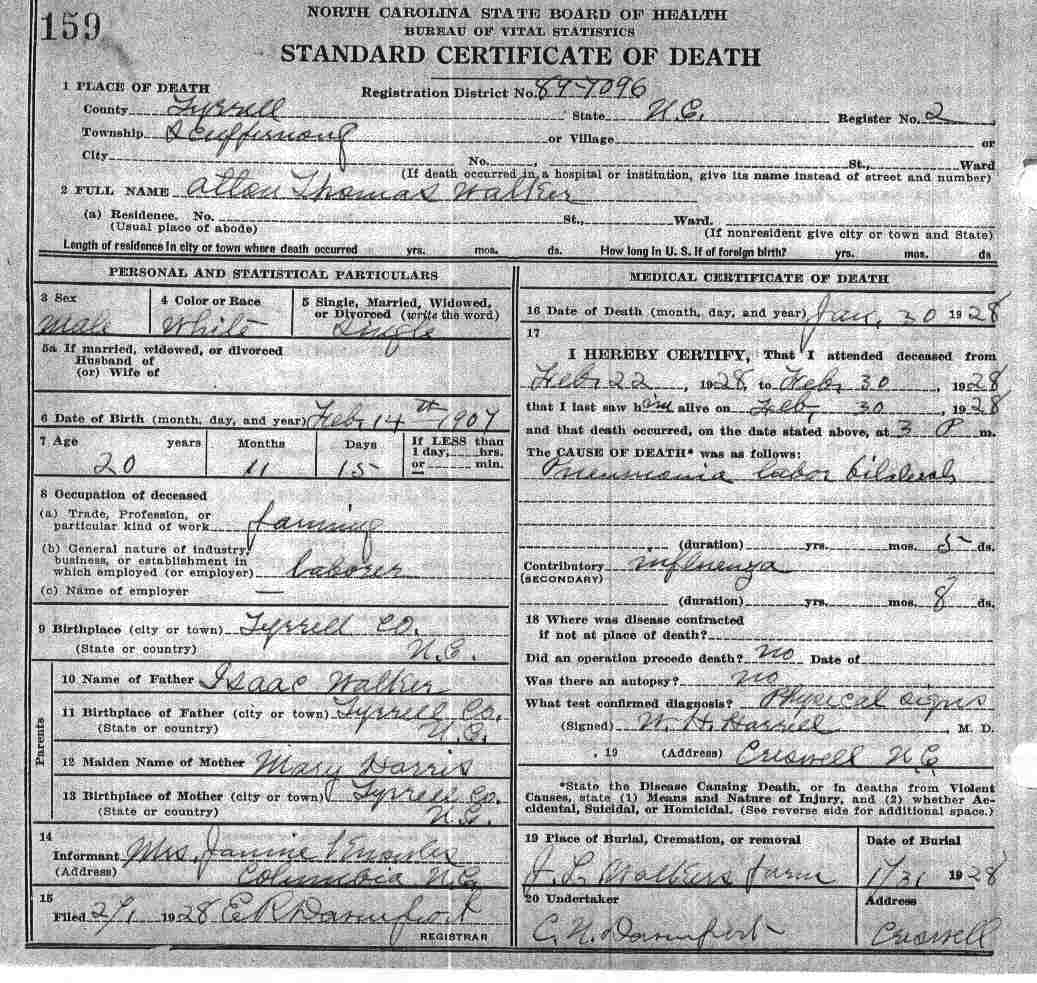 159
NORTH CAROLINA STATE BOARD OF HEALTH
BUREAU OF VITAL STATISTICS
STANDARD CERTIFICATE OF DEATH
1 PLACE OF DEATH
Registration District No. 89-7096
County Tyrrell State N.C. Register No. 2
Township Scuppernong or Village or
City No. St., Ward
(If death occurred in a hospital or institution, give its name instead of street and number)
2 FULL NAME Allon Thomas Walker
(a) Residence. No. St., Ward.
(Usual place of abode) (If nonresident give city or town and State)
Length of residence in city or town where death occurred yrs. mos. ds. How long in U. S. if of foreign birth? yrs. mos. ds
PERSONAL AND STATISTICAL PARTICULARS
3 Sex
male
4 Color or Race
White
5 Single, Married, Widowed,
or Divorced (write the word)
Single
5a If married, widowed, or divorced
Husband of
(or) Wife of
6 Date of Birth (month, day, and year) Feb. 14th 1907
7 Age years Months Days If LESS than
1 day, hrs.
or min.
20 11 15
8 Occupation of deceased
(a) Trade, Profession, or
particular kind of work farming
(b) General nature of industry,
business, or establishment in
which employed (or employer) laborer
(c) Name of employer —
9 Birthplace (city or town) Tyrrell Co.
(State or country) N.C.
Parents
10 Name of Father Isaac Walker
11 Birthplace of Father (city or town) Tyrrell Co.
(State or country) N.C.
12 Maiden Name of Mother Mary Harris
13 Birthplace of Mother (city or town) Tyrrell Co.
(State or country) N.C.
14
Informant Mrs. Janine Knowles
(Address) Columbia N.C.
15
Filed 2/1 1928 E.R. Davenport
REGISTRAR
MEDICAL CERTIFICATE OF DEATH
16 Date of Death (month, day, and year) Jan. 30 1928
17
I HEREBY CERTIFY, That I attended deceased from
Feb. 22, 1928, to Feb. 30, 1928
that I last saw him alive on Feb. 30, 1928
and that death occurred, on the date stated above, at 3 P m.
The CAUSE OF DEATH* was as follows:
Pneumonia labor bilateral
(duration) yrs. mos. 5 ds.
Contributory influenza
(SECONDARY)
(duration) yrs. mos. 8 ds.
18 Where was disease contracted
if not at place of death?
Did an operation precede death? no Date of
Was there an autopsy? no
What test confirmed diagnosis? Physical signs
(Signed) W. H. Harrell, M. D.
, 19 (Address) Creswell N.C.
*State the Disease Causing Death, or in deaths from Violent
Causes, state (1) Means and Nature of Injury, and (2) whether Ac-
cidental, Suicidal, or Homicidal. (See reverse side for additional space.)
19 Place of Burial, Cremation, or removal
J. L. Walkers farm
Date of Burial
1/31 1928
20 Undertaker
C. N. Davenport
Address
Creswell